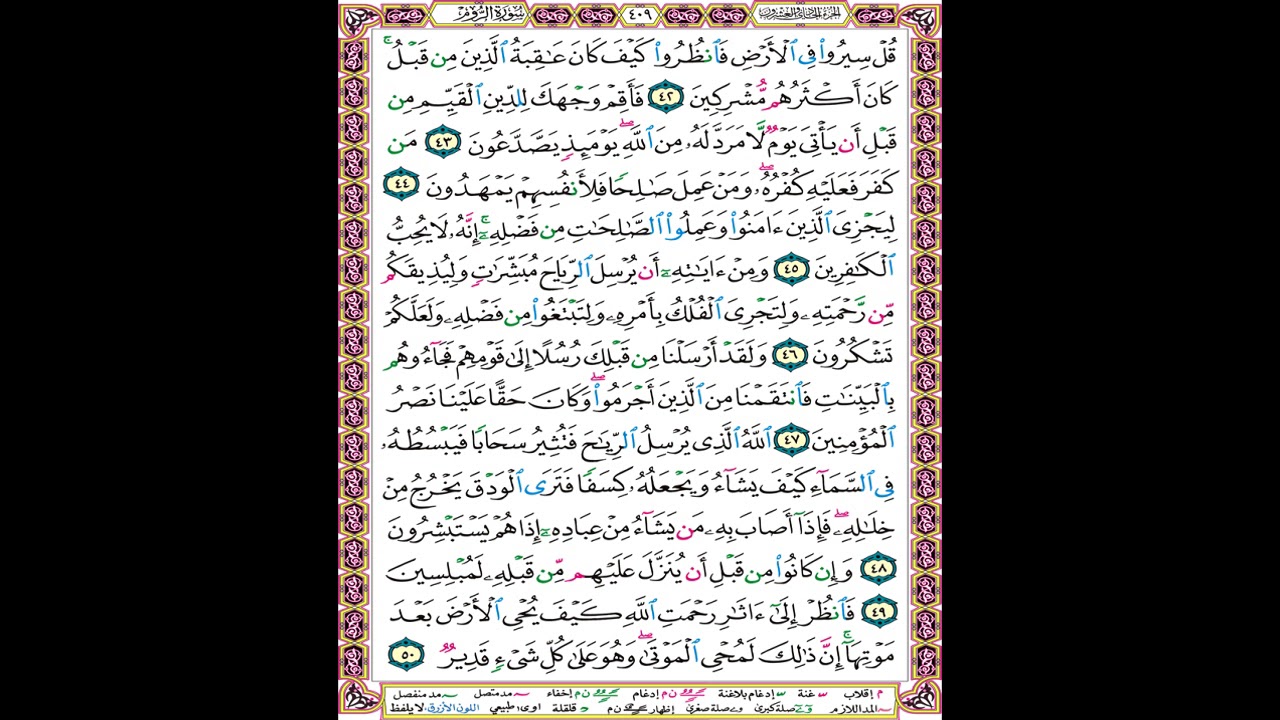 الجزء الحادي والعشرون ٤٠٩ سورة الروم
قُلْ سِيرُوا۟ فِى ٱلْأَرْضِ فَٱنظُرُوا۟ كَيْفَ كَانَ عَـٰقِبَةُ ٱلَّذِينَ مِن قَبْلُ ۚ
كَانَ أَكْثَرُهُم مُّشْرِكِينَ ٤٢ فَأَقِمْ وَجْهَكَ لِلدِّينِ ٱلْقَيِّمِ مِن
قَبْلِ أَن يَأْتِىَ يَوْمٌ لَّا مَرَدَّ لَهُۥ مِنَ ٱللَّهِ ۖ يَوْمَئِذٍ يَصَّدَّعُونَ ٤٣ مَن
كَفَرَ فَعَلَيْهِ كُفْرُهُۥ ۖ وَمَنْ عَمِلَ صَـٰلِحًا فَلِأَنفُسِهِمْ يَمْهَدُونَ ٤٤
لِيَجْزِىَ ٱلَّذِينَ ءَامَنُوا۟ وَعَمِلُوا۟ ٱلصَّـٰلِحَـٰتِ مِن فَضْلِهِۦٓ ۚ إِنَّهُۥ لَا يُحِبُّ
ٱلْكَـٰفِرِينَ ٤٥ وَمِنْ ءَايَـٰتِهِۦٓ أَن يُرْسِلَ ٱلرِّيَاحَ مُبَشِّرَٰتٍ وَلِيُذِيقَكُم
مِّن رَّحْمَتِهِۦ وَلِتَجْرِىَ ٱلْفُلْكُ بِأَمْرِهِۦ وَلِتَبْتَغُوا۟ مِن فَضْلِهِۦ وَلَعَلَّكُمْ
تَشْكُرُونَ ٤٦ وَلَقَدْ أَرْسَلْنَا مِن قَبْلِكَ رُسُلًا إِلَىٰ قَوْمِهِمْ فَجَآءُوهُم
بِٱلْبَيِّنَـٰتِ فَٱنتَقَمْنَا مِنَ ٱلَّذِينَ أَجْرَمُوا۟ ۖ وَكَانَ حَقًّا عَلَيْنَا نَصْرُ
ٱلْمُؤْمِنِينَ ٤٧ ٱللَّهُ ٱلَّذِى يُرْسِلُ ٱلرِّيَـٰحَ فَتُثِيرُ سَحَابًا فَيَبْسُطُهُۥ
فِى ٱلسَّمَآءِ كَيْفَ يَشَآءُ وَيَجْعَلُهُۥ كِسَفًا فَتَرَى ٱلْوَدْقَ يَخْرُجُ مِنْ
خِلَـٰلِهِۦ ۖ فَإِذَآ أَصَابَ بِهِۦ مَن يَشَآءُ مِنْ عِبَادِهِۦٓ إِذَا هُمْ يَسْتَبْشِرُونَ
٤٨ وَإِن كَانُوا۟ مِن قَبْلِ أَن يُنَزَّلَ عَلَيْهِم مِّن قَبْلِهِۦ لَمُبْلِسِينَ
٤٩ فَٱنظُرْ إِلَىٰٓ ءَاثَـٰرِ رَحْمَتِ ٱللَّهِ كَيْفَ يُحْىِ ٱلْأَرْضَ بَعْدَ
مَوْتِهَآ ۚ إِنَّ ذَٰلِكَ لَمُحْىِ ٱلْمَوْتَىٰ ۖ وَهُوَ عَلَىٰ كُلِّ شَىْءٍ قَدِيرٌ ٥٠
م إقلاب غنة إدغام بلاغنة ن م إدغام ن م إخفاء مد متصل مد منفصل
المد اللازم صلة كبرى صلة صغرى إظهار ن م قلقلة اوى: طبيعي اللون الأزرق: لا يلفظ